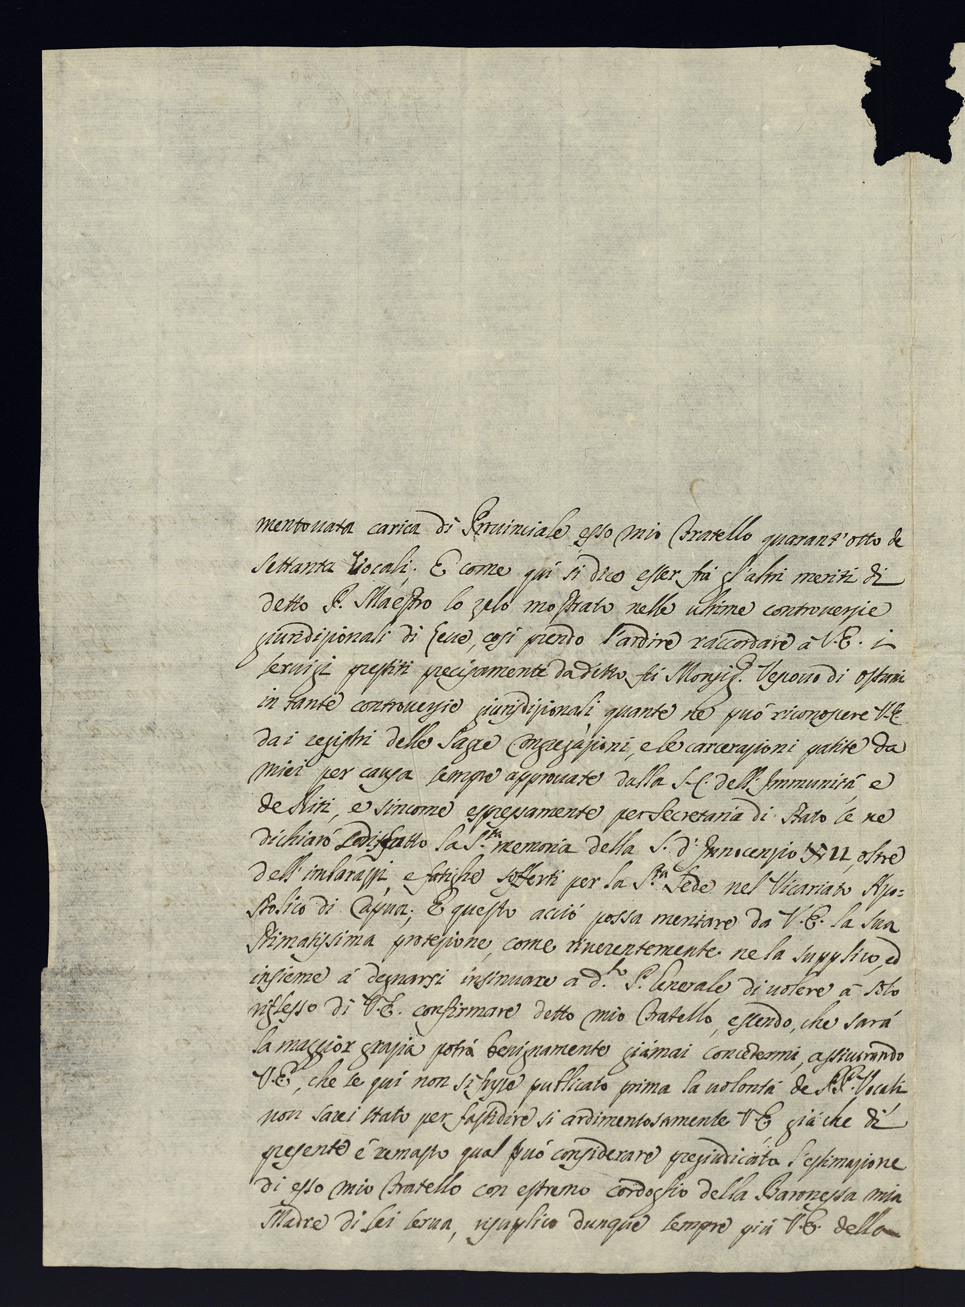 mentouata carica di Prouinciale esso mio Fratello quarant'otto de
settanta Vocali; E come quì si dice esser frà gl'altri meriti di
detto P. Maestro lo zelo mostrato nelle ultime controuersie
giurisdizionali di Lecce, così prendo l'ardire raccordare à V.E. i
seruizi prestiti precisamente da detto fù Monsig.r Vescouo di Ostuni
in tante controuersie giurisdizionali, quante ne può riconoscere V.E.
dai registri delle Sagre Congregazioni, e le carcerazioni patite da
miei per causa sempre approuate dalla S.C. dell'Immunità, e
de Riti, e sincome espressamente per Secretaria di Stato se ne
dichiarò sodisfatto la S.ta memoria della S. d'Innocenzio XII, oltre
dell'imbarazzi, e fatighe sofferti per la S.ta Sede nel Vicariato Apo=
stolico di Capua; E questo acciò possa meritare da V.E. la sua
stimatissima protezione, come riuerentemente ne la supplico, ed
insieme à degnarsi insinuare a d.to P. Generale di uolere à solo
riflesso di V.E. confirmare detto mio Fratello, essendo, che sarà
la maggior grazia potrà benignamente giámai concedermi, assicurando
V.E., che se quì non si fusse publicato prima la uolontà de PP. Vocali
non sarei stato per fastidire sì ardimentosamente V.E. già che di
presente è remasto qual può considerare pregiudicata l'estimazione
di esso mio Fratello con estremo cordoglio della Baronessa mia
Madre di lei serua, risuplico dunque sempre più V.E. della